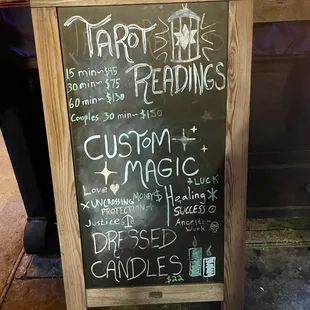 TAROT
READINGS
15 min~$45
30 min~$75
60 min~$130
Couples 30 min~$150
CUSTOM
MAGIC
Love
LUCK
UNCROSSING
MONEY$
Healing
PROTECTION
SUCCESS
Justice
Ancestor
WORK
DRESSED
CANDLES
$22